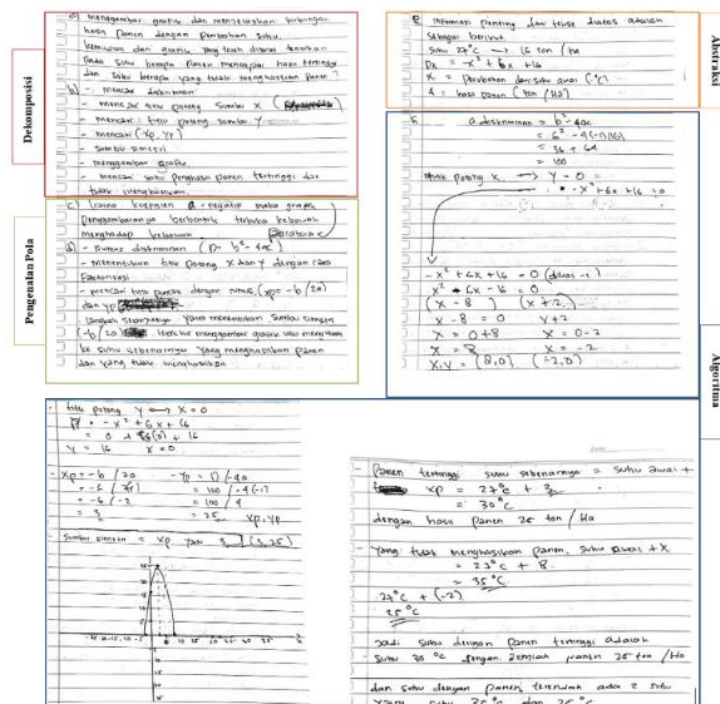 Dekomposisi
a) menggambar grafik dan menjelaskan hubungan
hasil panen dengan perubahan suhu.
kemudian dari grafik yang telah dibuat tentukan
pada suhu berapa panen mencapai hasil tertinggi
dan suhu berapa yang tidak menghasilkan panen ?
b) - mencari diskriminan
- mencari titik potong sumbu X
- mencari titik potong sumbu Y
- mencari (xp, yp)
- sumbu simetri
- menggambar grafik
- mencari suhu penghasil panen tertinggi dan
tidak menghasilkan.
Pengenalan Pola
c) karena koefisien a = negatif maka grafik
penggambaranya berbentuk terbuka kebawah
menghadap kebawah
d) - rumus diskriminan (D = b² - 4ac)
- menentukan titik potong X dan Y dengan cara
Faktorisasi
- mencari titik puncak dengan rumus, (xp = -b/2a)
dan yp
langkah selanjutnya yaitu menentukan sumbu simetri
(-b/2a) menggambar grafik lalu mengubah
ke suhu sebenarnya yang menghasilkan panen
dan yang tidak menghasilkan
Abstraksi
e Informasi penting dari teks diatas adalah
sebagai berikut.
Suhu 27°C → 16 ton / Ha
= -x² + 6x + 16
X = perubahan dari suhu awal (°C)
= hasil panen (ton / Ha)
Algoritma
a diskriminan = b² - 4ac
= 6² - 4(-1)(16)
= 36 + 64
= 100
titik potong x. → Y = 0 =
-x² + 6x + 16 = 0
-x² + 6x + 16 = 0 (dibagi -1)
x² - 6x - 16 = 0
(x - 8) (x + 2)
x - 8 = 0 x + 2
x = 0+8 x = 0-2
x = 8 x = -2
x,y = (8,0) (-2,0)
- titik potong Y → X = 0
= -x² + 6x + 16
= 0 + 6(0) + 16
Y = 16 X = 0
- Xp = -b / 2a - Yp = D / -4a
= -6 / 2(-1) = 100 / -4(-1)
= -6 / -2 = 100 / 4
= 3 = 25 xp, yp
- Sumbu simetri = xp yaitu 3 (3,25)
- Panen tertinggi suhu sebenarnya = suhu awal +
xp = 27°C + 3
= 30°C
dengan hasil panen 25 ton / Ha
- Yang tidak menghasilkan panen, suhu awal + X
= 27°C + 8
= 35°C
27°C + (-2)
25°C
Jadi suhu dengan panen tertinggi adalah
suhu 30 °C dengan jumlah panen 25 ton / Ha
dan suhu dengan panen terendah ada 2 suhu
yaitu suhu 35°C dan 25°C